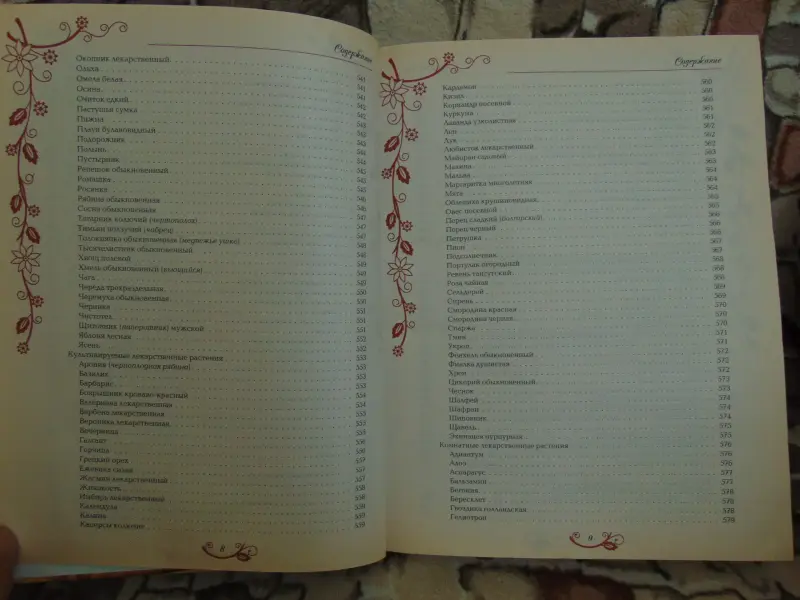 Содержание
Окопник лекарственный
Ольха 541
Омела белая 541
Осина 541
Очиток едкий 542
Пастушья сумка 542
Пижма 542
Плаун булавовидный 543
Подорожник 543
Полынь 544
Пустырник 544
Репешок обыкновенный 545
Ромашка 545
Росянка 545
Рябина обыкновенная 546
Сосна обыкновенная 546
Татарник колючий (чертополох) 547
Тимьян ползучий (чабрец) 547
Толокнянка обыкновенная (медвежье ушко) 548
Тысячелистник обыкновенный 548
Хвощ полевой 549
Хмель обыкновенный (вьющийся) 549
Чага 549
Череда трехраздельная 550
Черемуха обыкновенная 550
Черника 551
Чистотел 551
Щитовник (папоротник) мужской 551
Яблоня лесная 552
Ясень 552
Культивируемые лекарственные растения 553
Арония (черноплодная рябина) 553
Базилик 553
Барбарис 553
Боярышник кроваво-красный 554
Валериана лекарственная 554
Вербена лекарственная 555
Вероника лекарственная 555
Вечерница 555
Гиацинт 556
Горчица 556
Грецкий орех 557
Ежевика сизая 557
Жасмин лекарственный 557
Жимолость 558
Имбирь лекарственный 558
Календула 558
Калина 559
Каперсы колючие 559
8
Содержание
Кардамон 560
Кизил 560
Кориандр посевной 560
Куркума 561
Лаванда узколистная 561
Лен 562
Лук 562
Любисток лекарственный 562
Майоран садовый 563
Малина 563
Мальва 564
Маргаритка многолетняя 564
Мята 564
Облепиха крушиновидная 565
Овес посевной 565
Перец сладкий (болгарский) 566
Перец черный 566
Петрушка 566
Пион 567
Подсолнечник 567
Портулак огородный 568
Ревень тангутский 568
Роза чайная 569
Сельдерей 569
Сирень 569
Смородина красная 570
Смородина черная 570
Спаржа 570
Тмин 571
Укроп 571
Фенхель обыкновенный 572
Фиалка душистая 572
Хрен 572
Цикорий обыкновенный 573
Чеснок 573
Шалфей 574
Шафран 574
Шиповник 574
Щавель 575
Эхинацея пурпурная 575
Комнатные лекарственные растения 576
Адиантум 576
Алоэ 576
Аспарагус 577
Бальзамин 577
Бегония 578
Бересклет 578
Гвоздика голландская 578
Гелиотроп 579
9